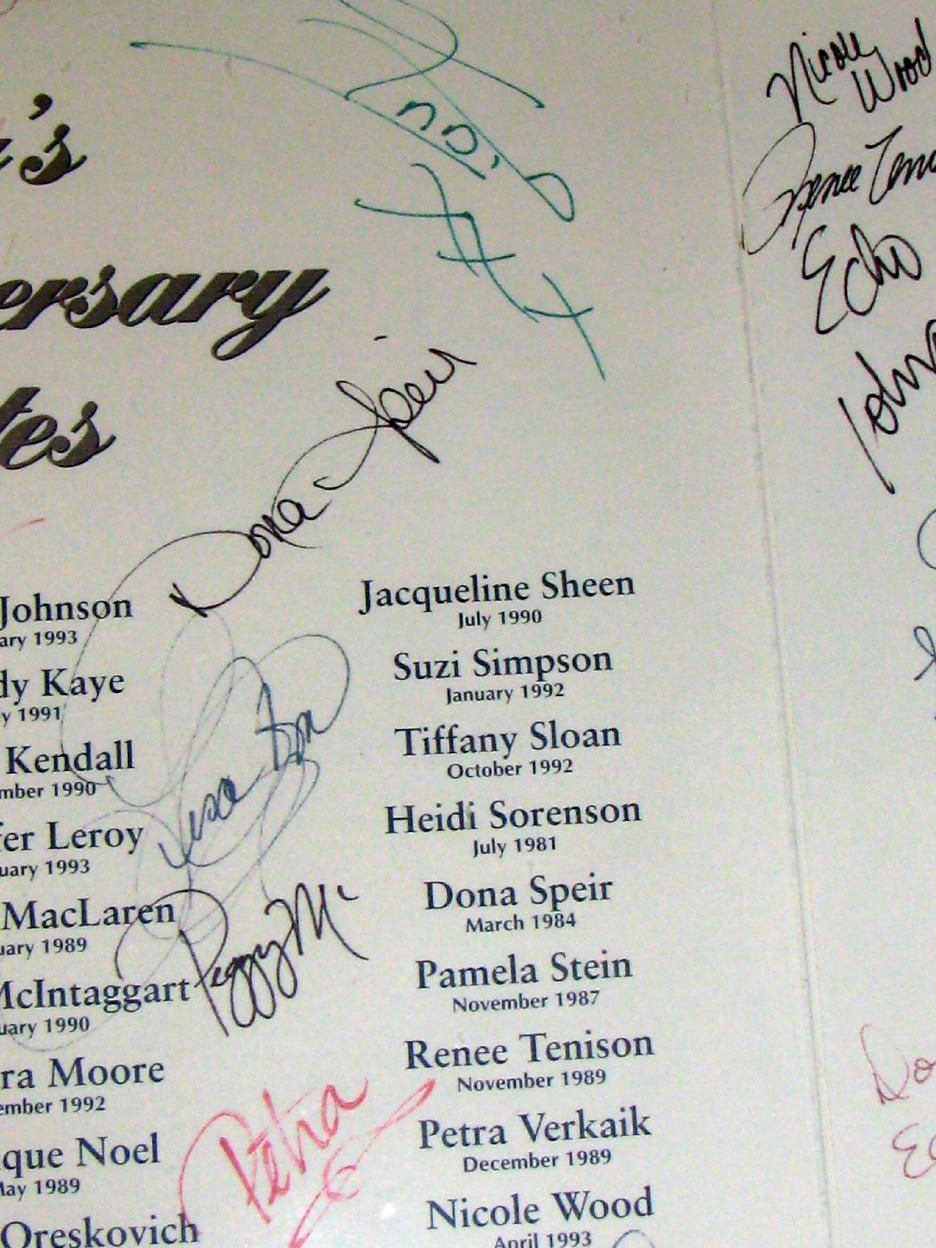 's
ersary
tes
Nicole
Wood
Renee
Echo
John
Dona Speir
Johnson
ary 1993
dy Kaye
y 1991
Kendall
mber 1990
fer Leroy
uary 1993
MacLaren
uary 1989
McIntaggart
uary 1990
ra Moore
ember 1992
que Noel
May 1989
Oreskovich
Peggy Mc
Petra
Jacqueline Sheen
July 1990
Suzi Simpson
January 1992
Tiffany Sloan
October 1992
Heidi Sorenson
July 1981
Dona Speir
March 1984
Pamela Stein
November 1987
Renee Tenison
November 1989
Petra Verkaik
December 1989
Nicole Wood
April 1993